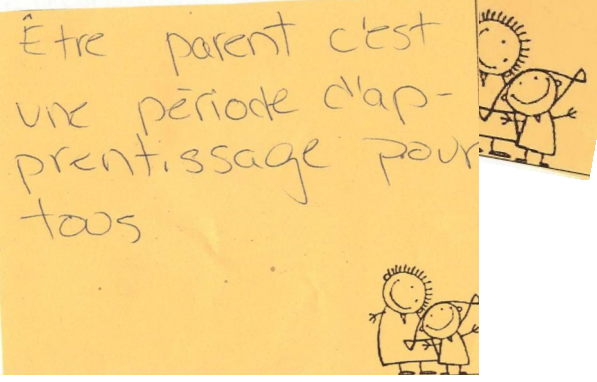 Être parent c'est
une période d'ap-
prentissage pour
tous